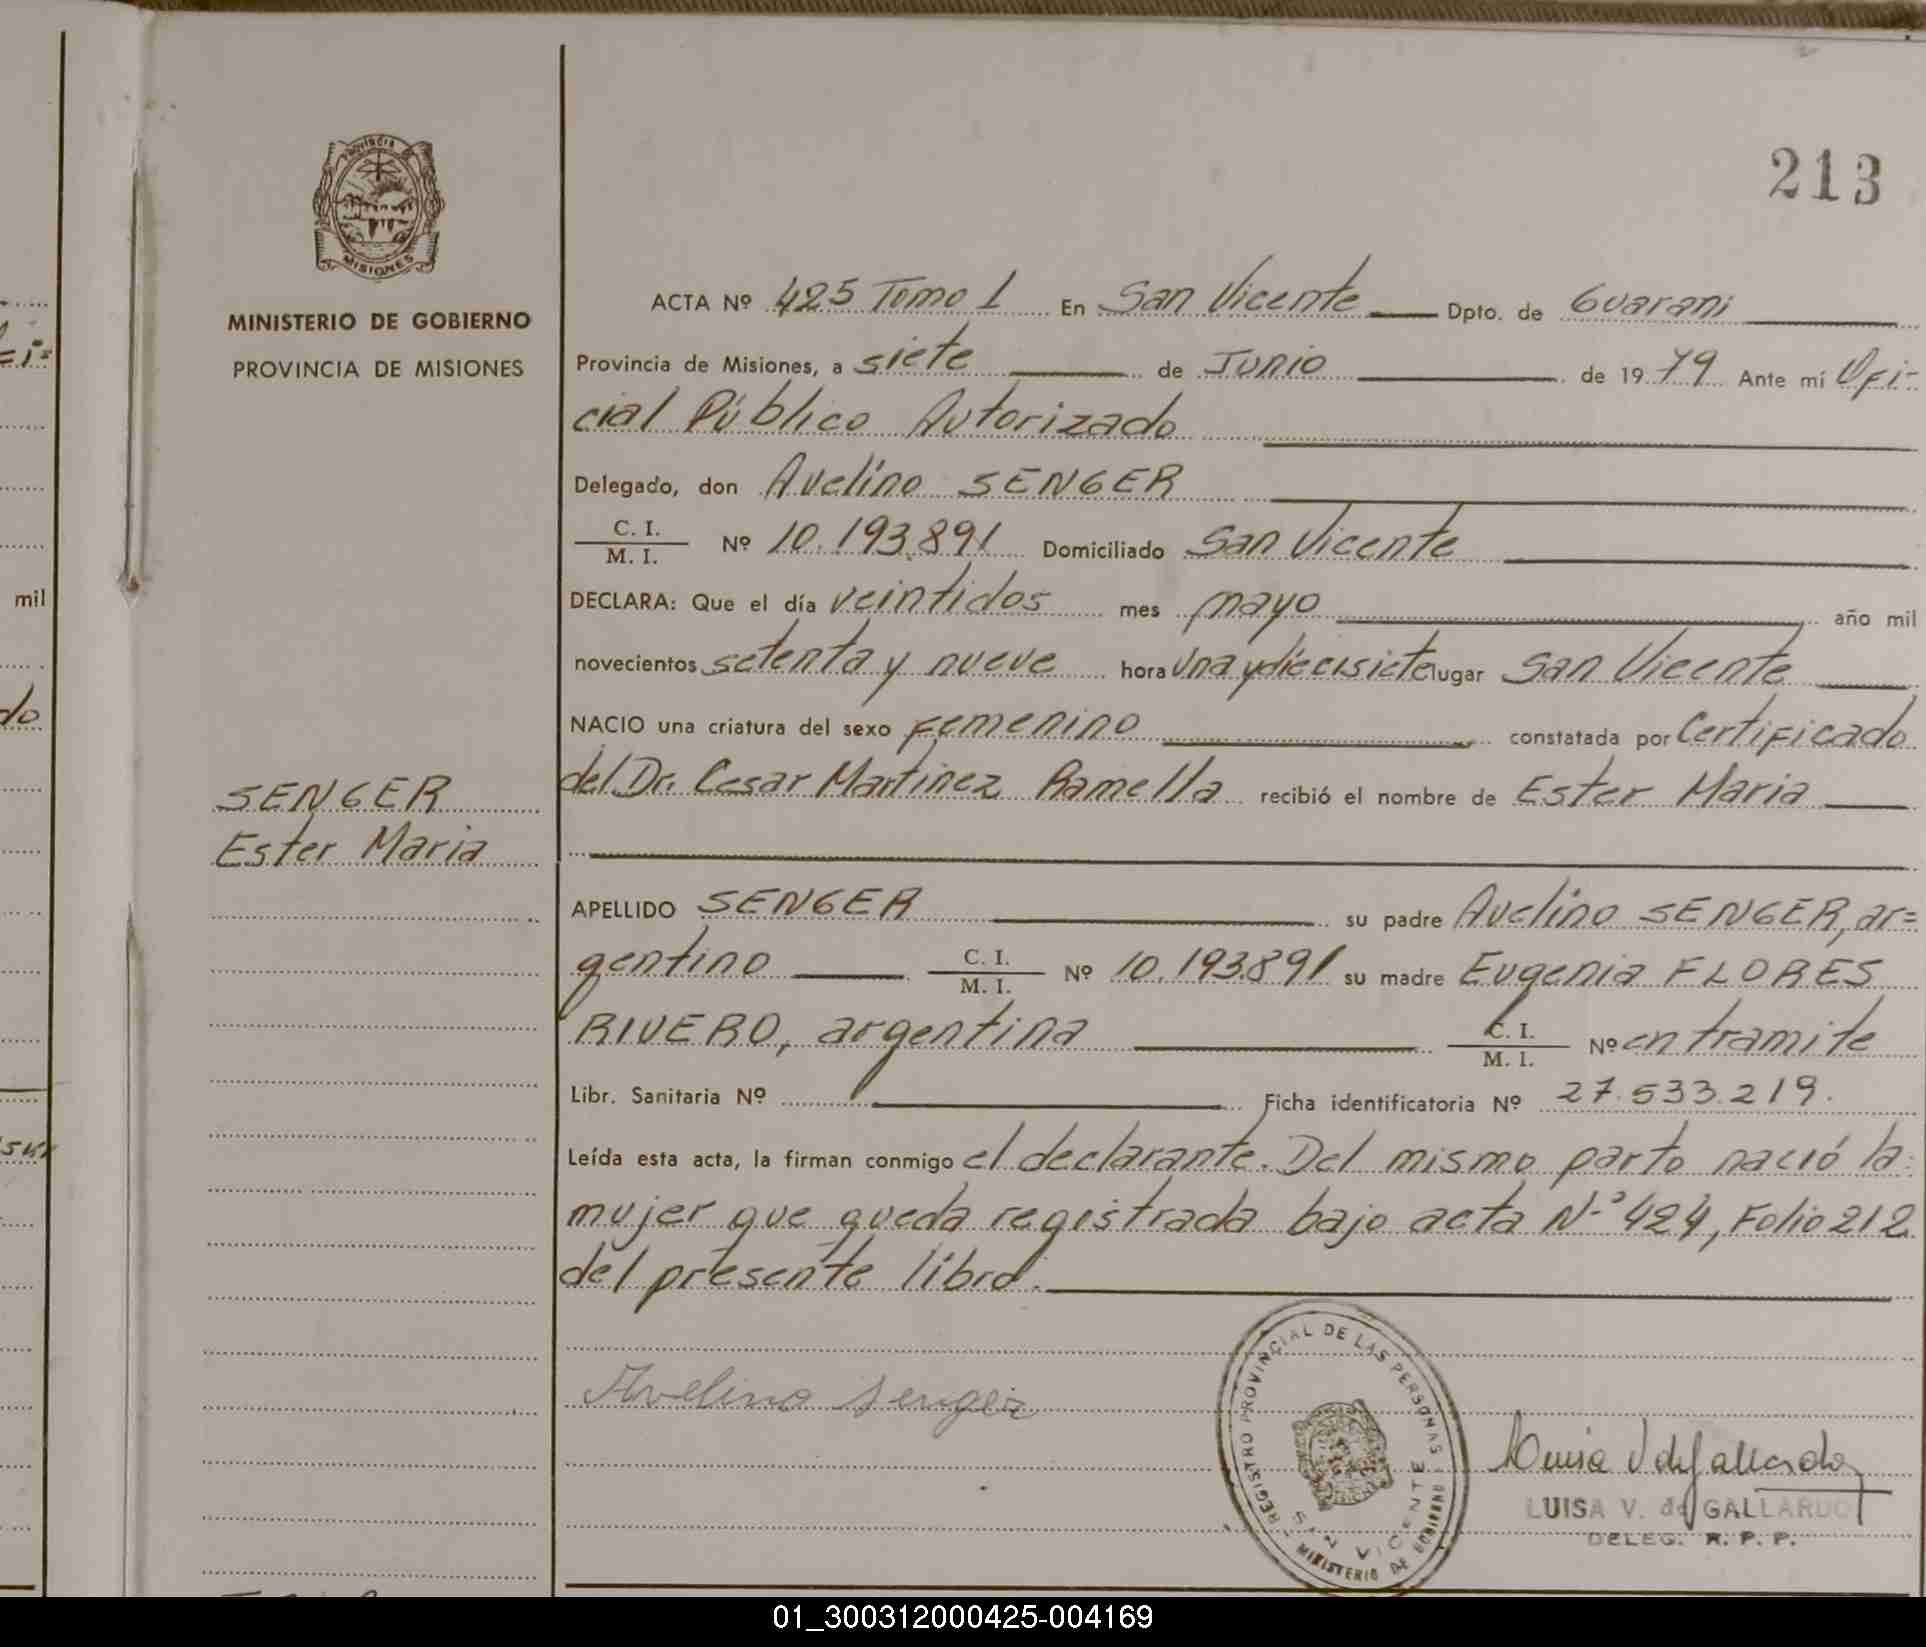 PROVINCIA DE
MISIONES
MINISTERIO DE GOBIERNO
PROVINCIA DE MISIONES
SENGER
Ester Maria
213
ACTA Nº 425 Tomo 1 En San Vicente Dpto. de Guarani
Provincia de Misiones, a siete de Junio de 1979 Ante mí Ofi-
cial Público Autorizado
Delegado, don Avelino SENGER
C. I.
M. I. Nº 10.193.891 Domiciliado San Vicente
DECLARA: Que el día veintidos mes mayo año mil
novecientos setenta y nueve hora una y diecisiete lugar San Vicente
NACIO una criatura del sexo femenino constatada por Certificado
del Dr. Cesar Martinez Ramella recibió el nombre de Ester Maria
APELLIDO SENGER su padre Avelino SENGER, ar=
gentino C. I. M. I. Nº 10.193.891 su madre Eugenia FLORES
RIVERO, argentina C. I. M. I. Nº en tramite
Libr. Sanitaria Nº Ficha identificatoria Nº 27.533.219.
Leída esta acta, la firman conmigo el declarante. Del mismo parto nació la
mujer que queda registrada bajo acta Nº 424, Folio 212
del presente libro.
Avelino Senger
REGISTRO PROVINCIAL DE LAS PERSONAS
SAN VICENTE
MINISTERIO DE GOBIERNO
Luisa V de Gallardo
LUISA V. de GALLARDO
DELEG. R. P. P.
mil
do
01_300312000425-004169